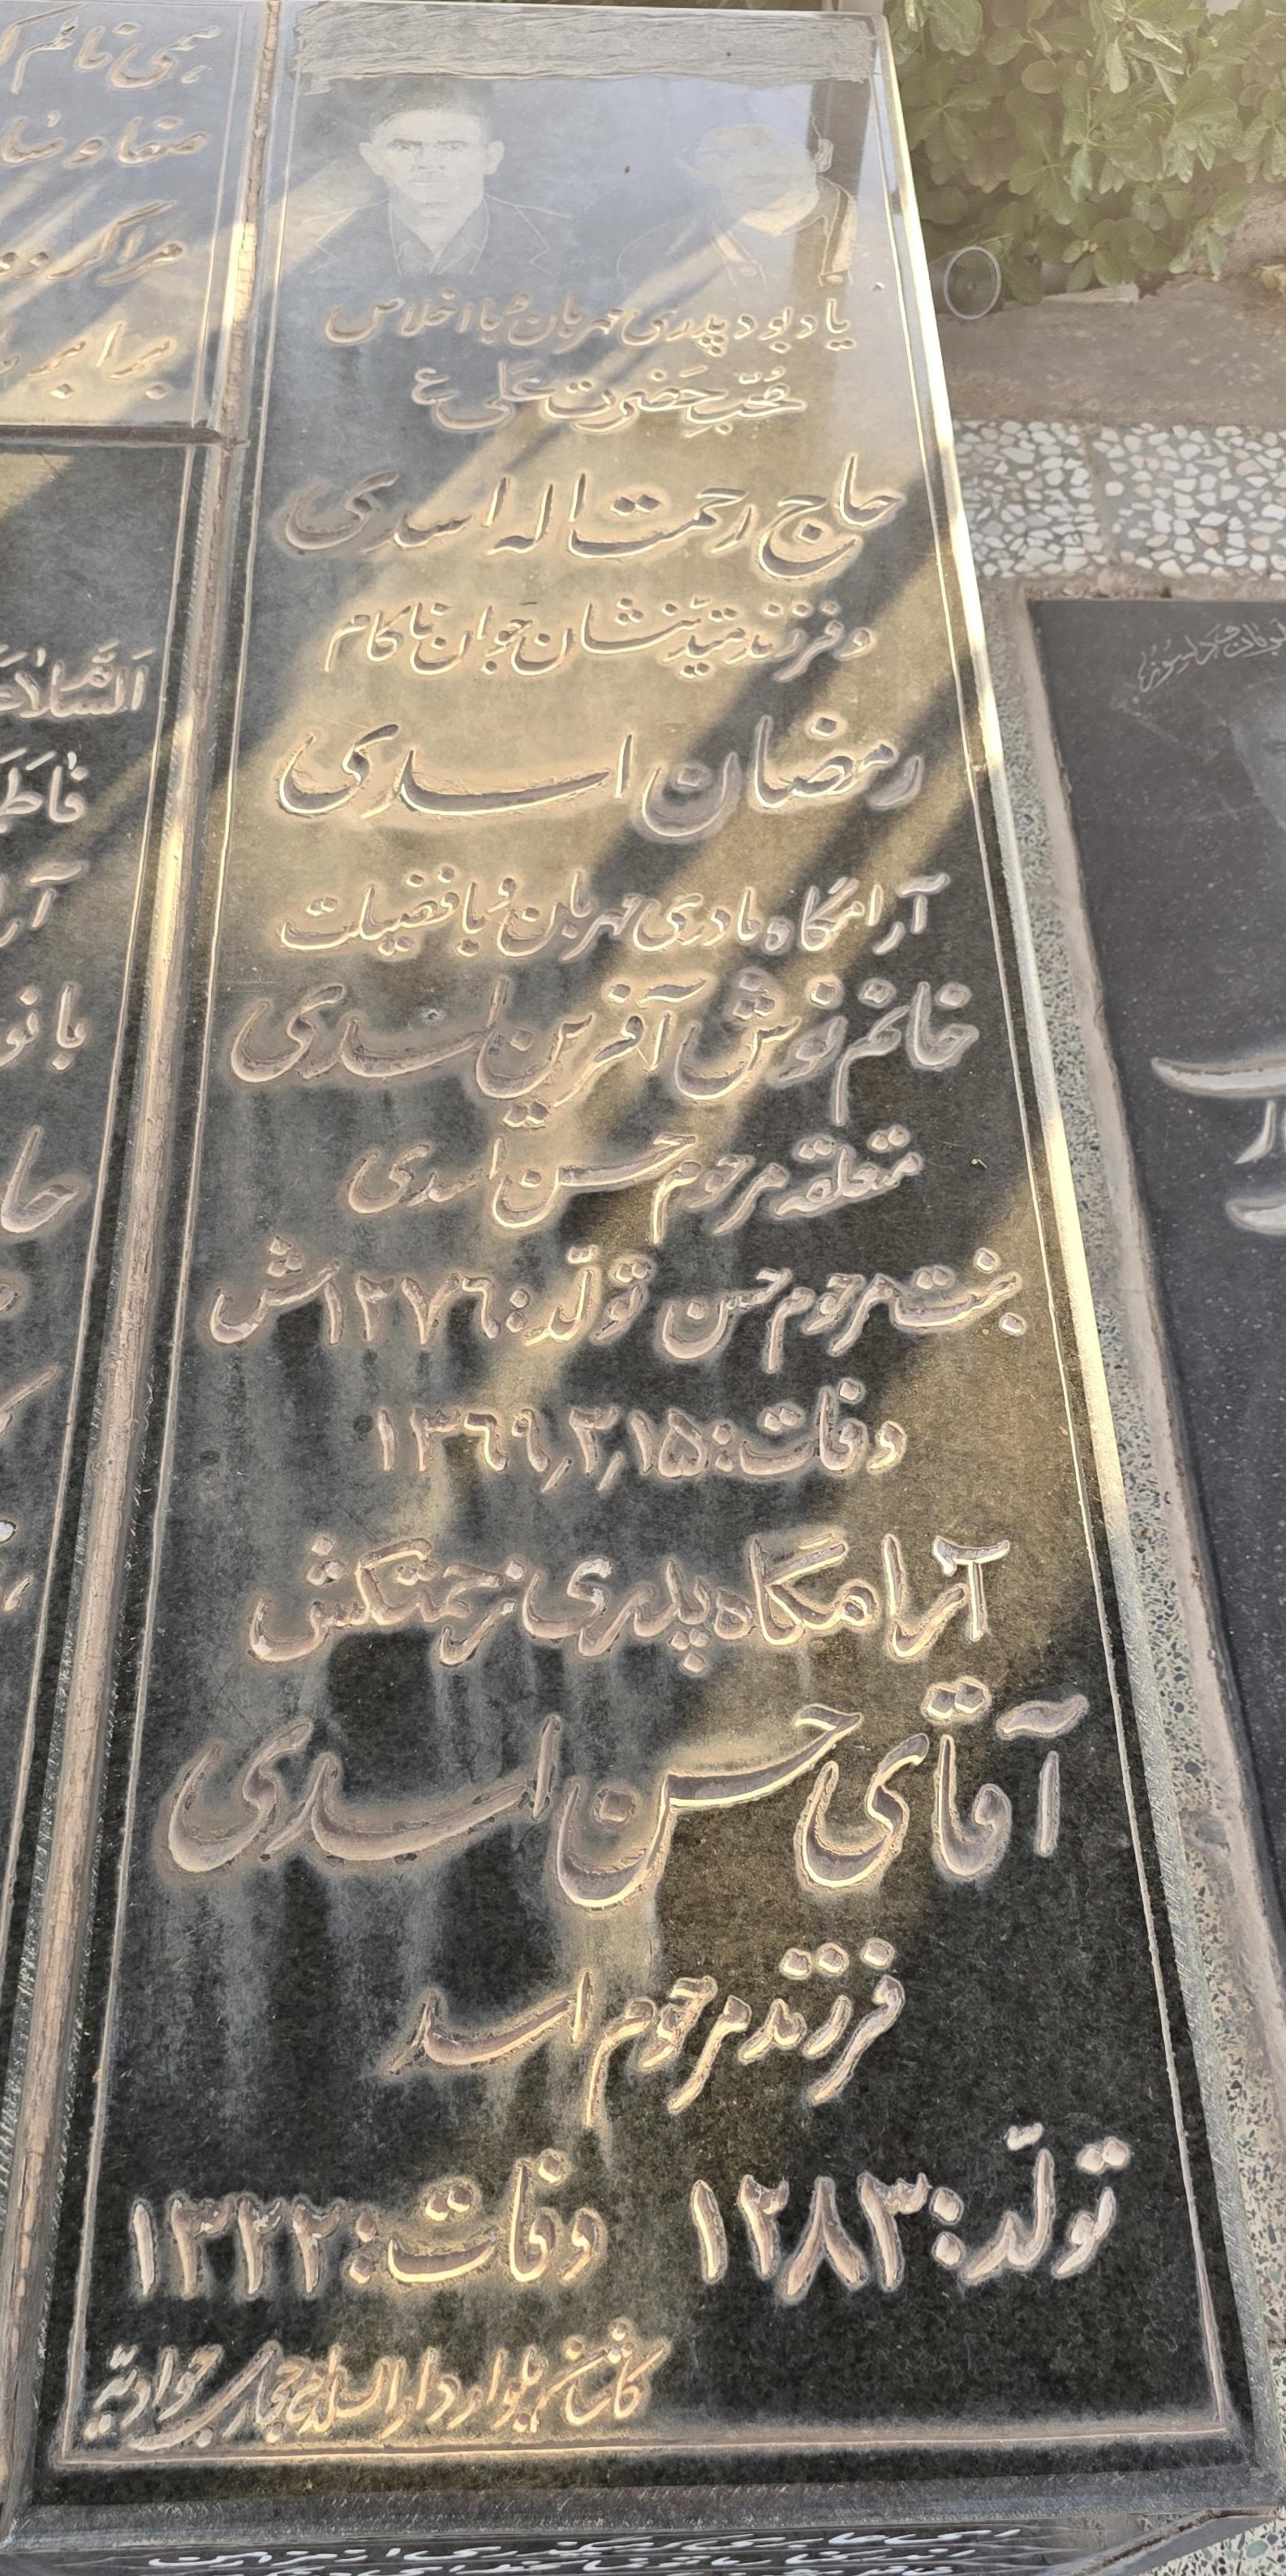 یادبود پدری مهربان و با اخلاص
محب حضرت علی ع
حاج رحمت اله اسدی
و فرزند متدینشان جوان ناکام
رمضان اسدی
آرامگاه مادری مهربان و با فضیلت
خانم نوش آفرین اسدی
متعلقه مرحوم حسن اسدی
بنت مرحوم حسن تولد: ۱۲۷۶ ش
وفات: ۱۳۶۹٫۳٫۱۵
آرامگاه پدری زحمتکش
آقای حسن اسدی
فرزند مرحوم اسد
تولد: ۱۲۸۳ وفات: ۱۳۲۲
کاشان بلوار دارالسلام حجاری جوادیه
السلام
فاطم
بانو
برابر